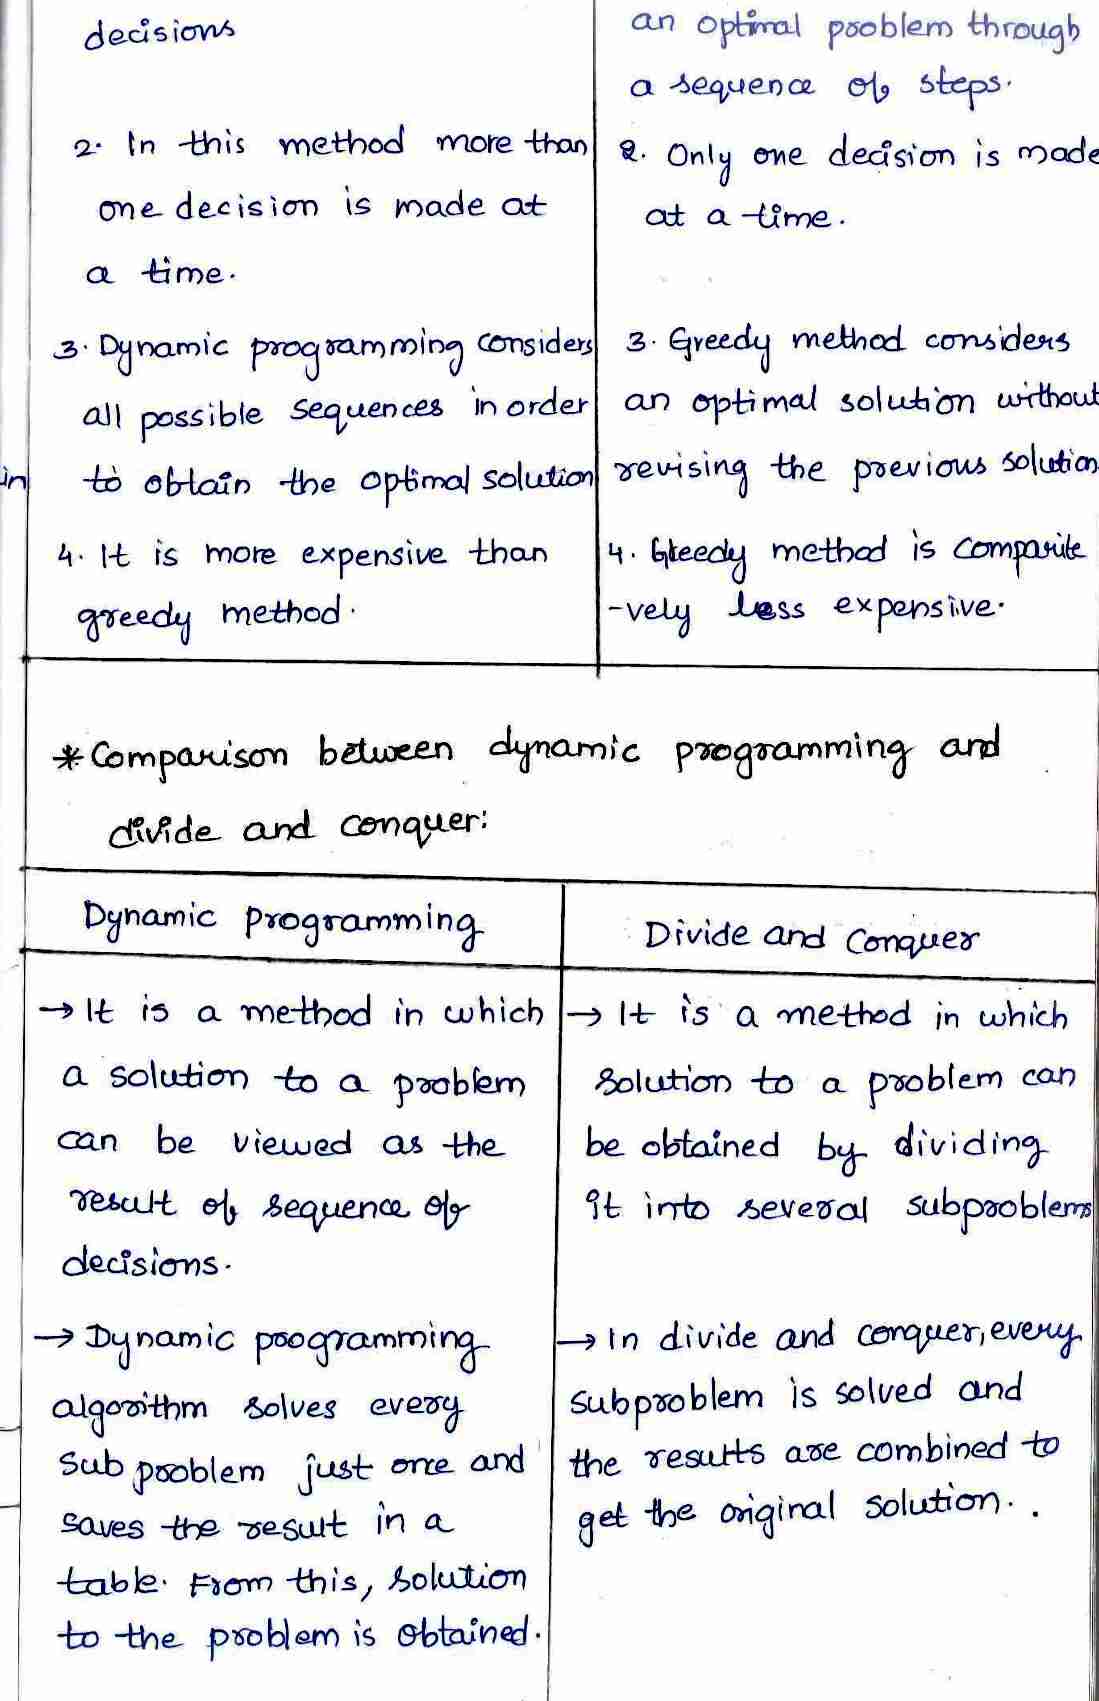 decisions
2. In this method more than
one decision is made at
a time.
3. Dynamic programming considers
all possible sequences in order
to obtain the optimal solution
4. It is more expensive than
greedy method.
an optimal problem through
a sequence of steps.
2. Only one decision is made
at a time.
3. Greedy method considers
an optimal solution without
revising the previous solution
4. Greedy method is comparite
-vely less expensive.
in
* Comparison between dynamic programming and
divide and conquer:
Dynamic programming
→ It is a method in which
a solution to a problem
can be viewed as the
result of sequence of
decisions.
→ Dynamic programming
algorithm solves every
sub problem just once and
saves the result in a
table. From this, solution
to the problem is obtained.
Divide and Conquer
→ It is a method in which
solution to a problem can
be obtained by dividing
it into several subproblems
→ In divide and conquer, every
subproblem is solved and
the results are combined to
get the original solution.